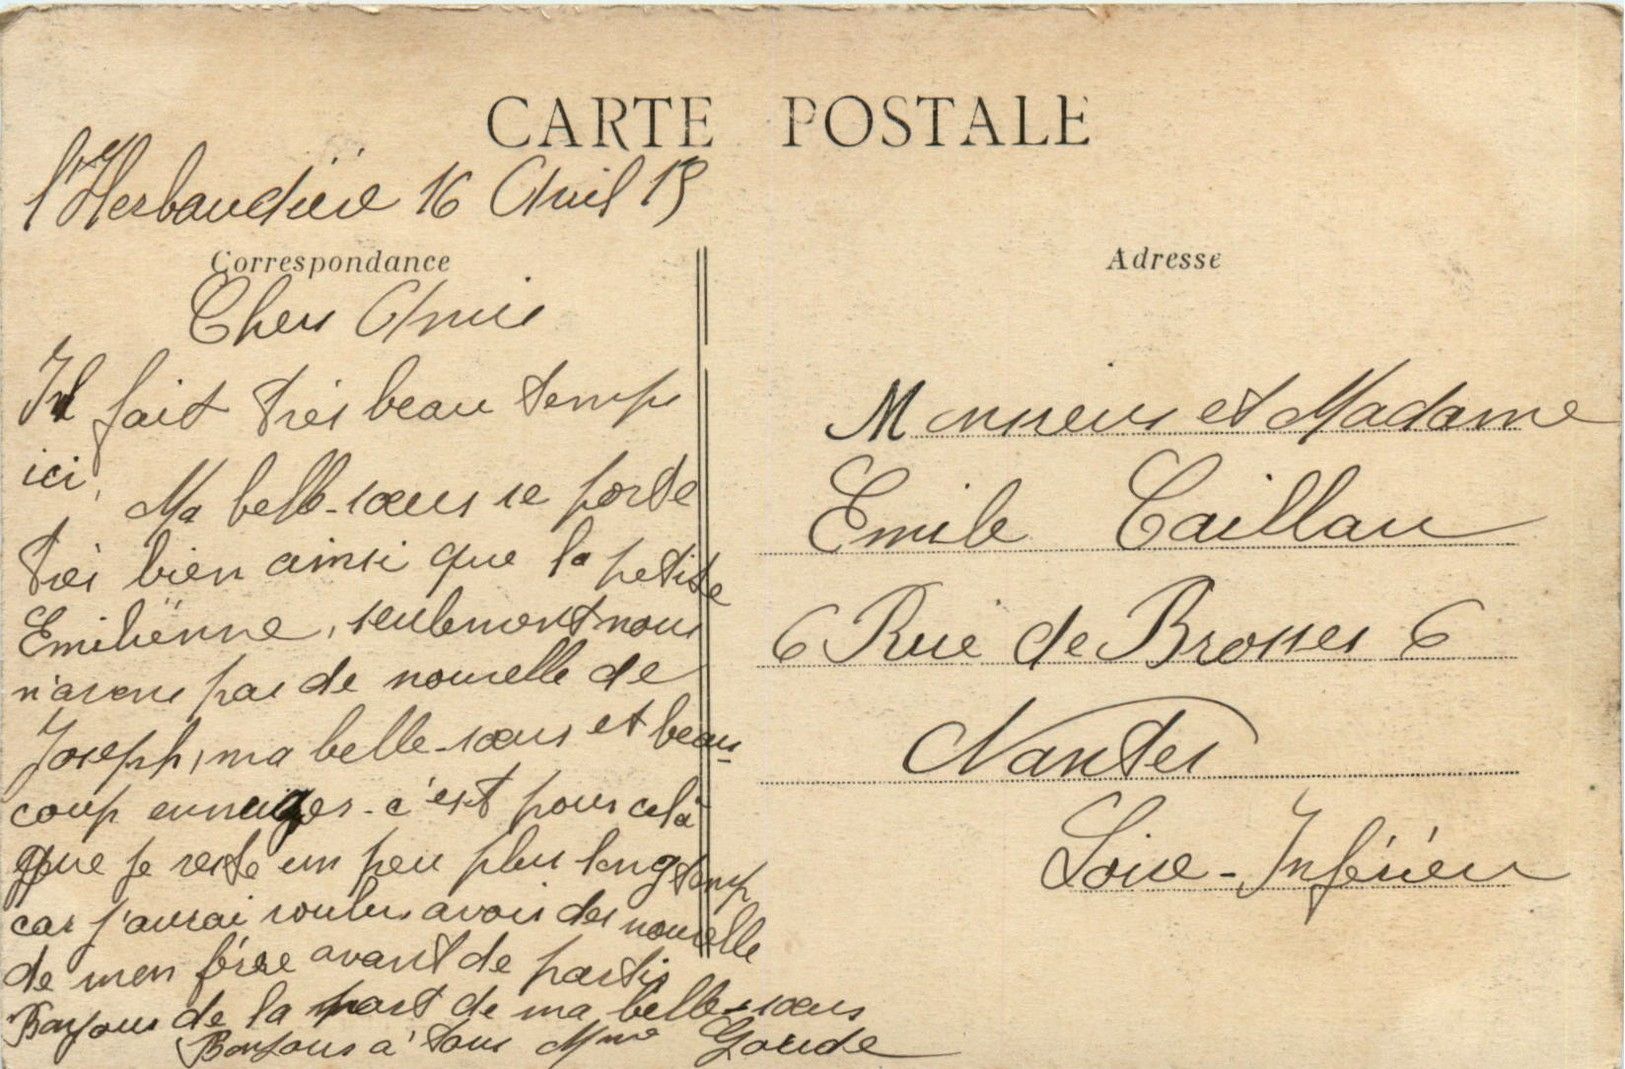 CARTE POSTALE
l'Herbaudière 16 Avril 15
Correspondance
Chers Amis
Il fait très beau temps
ici, Ma belle-sœur se porte
très bien ainsi que la petite
Emiliènne, seulement nous
n'avons pas de nouvelle de
Joseph, ma belle-sœur et beau-
coup ennuyer - c'est pour celà
que je reste un peu plus longtemp
car j'aurai voulus avoir des nouvelle
de mon frère avant de partir
Bonjour de la part de ma belle-sœur
Bonjour a' tous Mme Goude
Adresse
Monsieur et Madame
Emile Caillau
6 Rue de Brosses 6
Nantes
Loire-Inférieu